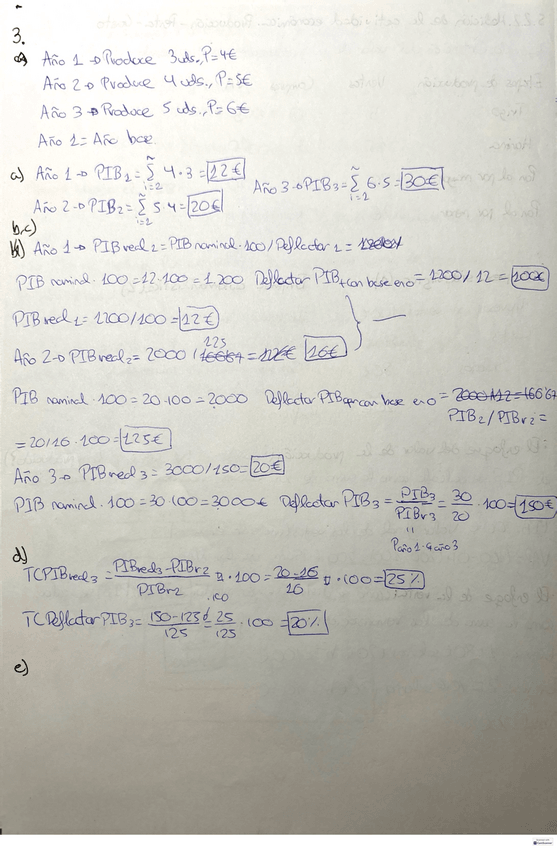 3.
a) Año 1 → Produce 3 uds., P=4€
Año 2 → Produce 4 uds., P=5€
Año 3 → Produce 5 uds., P=6€
Año 1 = Año base.
a) Año 1 → PIB₁ = ∑ 4·3 = 12€ Año 3 → PIB₃ = ∑ 6·5 = 30€
Año 2 → PIB₂ = ∑ 5·4 = 20€
b,c)
Año 1 → PIB real₁ = PIB nominal·100 / Deflactor₁ =
PIB nominal·100 = 12·100 = 1.200 Deflactor PIB₁ con base = 1200/12 = 100€
PIB real₁ = 1200/100 = 12€
Año 2 → PIB real₂ = 2000 / 125 = 16€
PIB nominal·100 = 20·100 = 2000 Deflactor PIB con base =
PIB₂/PIBr₂ =
= 20/16·100 = 125€
Año 3 → PIB real₃ = 3000/150 = 20€
PIB nominal·100 = 30·100 = 3000€ Deflactor PIB₃ = PIB₃/PIBr₃ = 30/20 ·100 = 150€
Paño1·qaño3
d)
TCPIBreal₃ = PIBreal₃-PIBr₂/PIBr₂ ·100 = 20-16/16 ·100 = 25%
TCDeflactorPIB₃ = 150-125/125 = 25/125 ·100 = 20%
e)